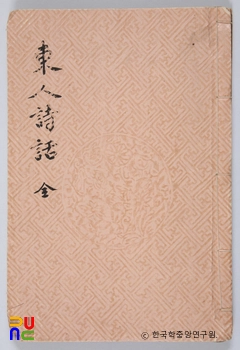 東人詩話 全
© 한국학중앙연구원